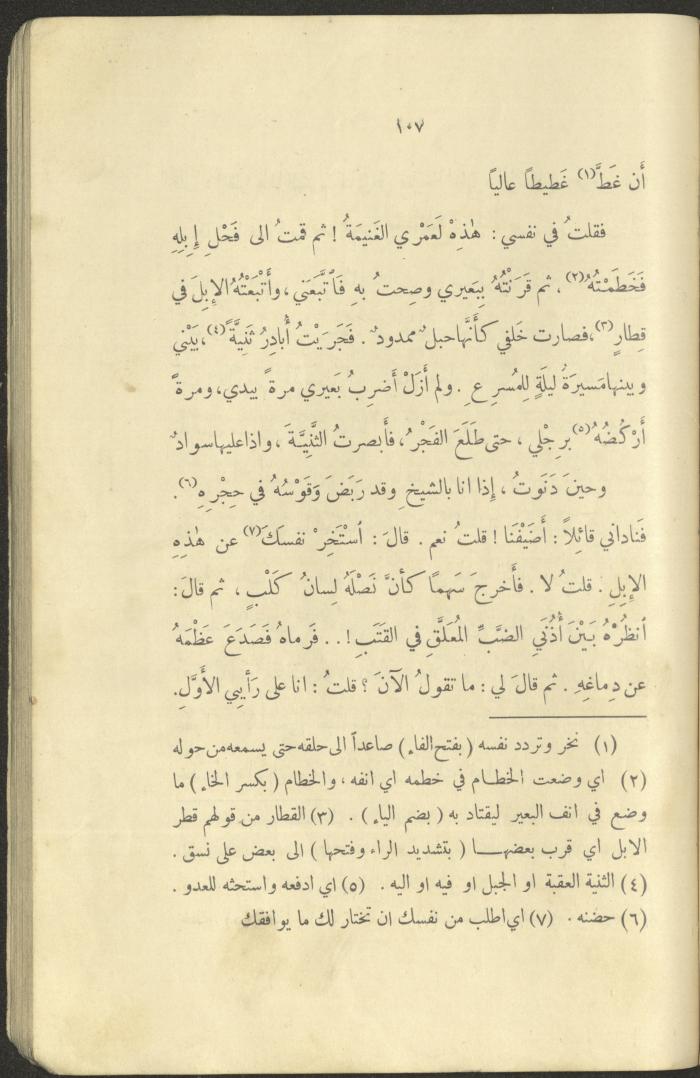 ١٠٧
أَن غَطَّ(١) غَطيطاً عالياً
فقلتُ في نفسي : هٰذِهْ لَعَمْري الغَنيمَةُ ! ثم قمتُ الى فَحْلِ إِبِلِهِ
فَخَطَمْتُهُ(٢) ، ثم قَرَنْتُهُ بِبَعيري وصِحتُ بهِ فَاتَّبَعَني ، وأَتْبَعْتُهُ الإِبِلَ في
قِطارٍ(٣) ، فصارت خَلفي كأنَّها حبلٌ ممدودٌ . فَجَرَيْتُ أُبادِرُ ثَنِيَّةً(٤) ، بَيْني
وبينها مَسيرَةُ ليلَةٍ لِلمُسرِعِ . ولم أَزَلْ أَضرِبُ بَعيري مرةً بيدي ، ومرةً
أَرْكُضُهُ(٥) برِجْلي ، حتى طَلَعَ الفَجْرُ ، فأَبصرتُ الثَّنِيَّةَ ، واذا عليها سوادٌ
وحينَ دَنَوتُ ، إِذا انا بالشيخِ وقد رَبَضَ وَقَوْسُهُ في حِجْرِهِ(٦) .
فَناداني قائِلاً : أَضَيْفَنا ! قلتُ نعم . قالَ : اَسْتَخِرْ نفسَكَ(٧) عن هٰذِهِ
الإِبِلِ . قلتُ لا . فأَخرجَ سَهمًا كأنَّ نَصْلَهُ لِسانُ كَلْبٍ ، ثم قالَ :
اُنظُرْهُ بَيْنَ أُذُنَيِ الضَّبِّ المُعَلَّقِ في القَتَبِ ! . . فَرماهُ فَصَدَعَ عَظْمَهُ
عن دِماغِهِ . ثم قالَ لي : ما تقولُ الآنَ ؟ قلتُ : انا على رَأْيِي الأَوَّلِ .
(١) نخر وتردد نفسه ( بفتح الفاء ) صاعداً الى حلقه حتى يسمعه من حوله
(٢) اي وضعت الخطام في خطمه اي انفه ، والخطام ( بكسر الخاء ) ما
وضع في انف البعير ليقتاد به ( بضم الياء ) . (٣) القطار من قولهم قطر
الابل اي قرب بعضها ( بتشديد الراء وفتحها ) الى بعض على نسق .
(٤) الثنية العقبة او الجبل او فيه او اليه . (٥) اي ادفعه واستحثه للعدو .
(٦) حضنه . (٧) اي اطلب من نفسك ان تختار لك ما يوافقك